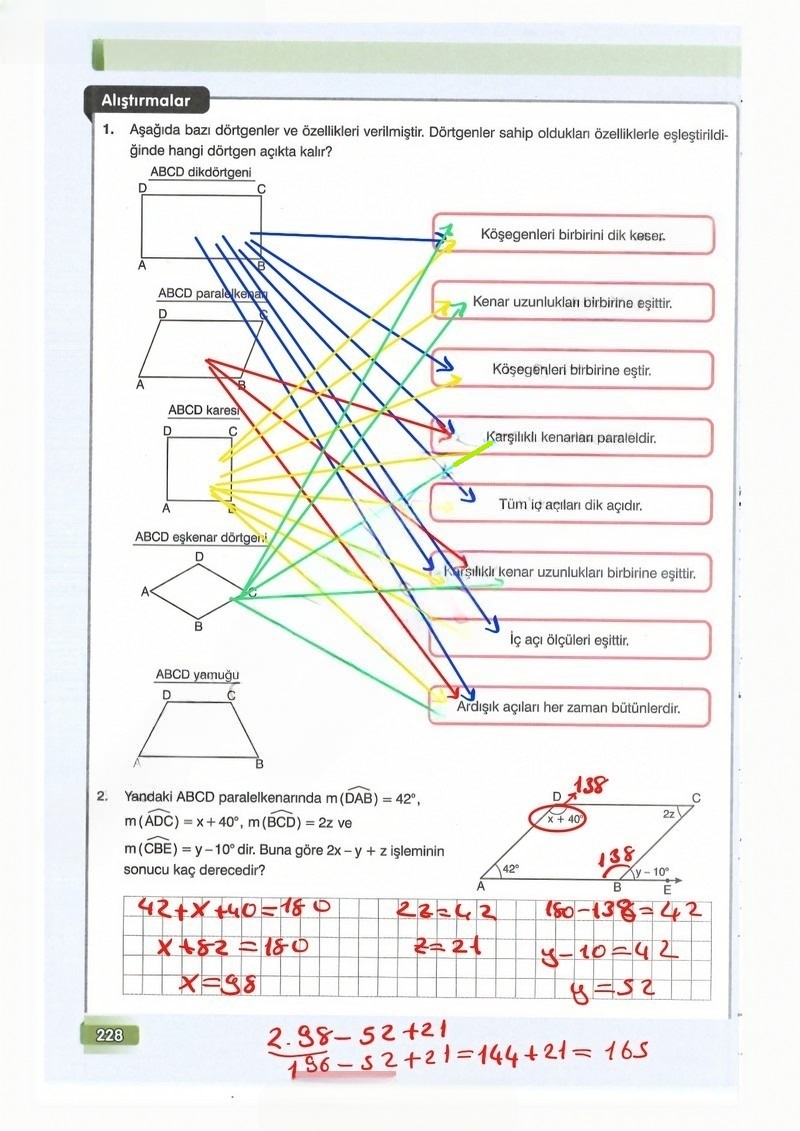 Alıştırmalar
1. Aşağıda bazı dörtgenler ve özellikleri verilmiştir. Dörtgenler sahip oldukları özelliklerle eşleştirildi-
ğinde hangi dörtgen açıkta kalır?
ABCD dikdörtgeni
D C
A B
Köşegenleri birbirini dik keser.
ABCD paralelkenarı
D C
A B
Kenar uzunlukları birbirine eşittir.
Köşegenleri birbirine eştir.
ABCD karesi
D C
A B
Karşılıklı kenarları paraleldir.
Tüm iç açıları dik açıdır.
ABCD eşkenar dörtgeni
D
A C
B
Karşılıklı kenar uzunlukları birbirine eşittir.
İç açı ölçüleri eşittir.
ABCD yamuğu
D C
A B
Ardışık açıları her zaman bütünlerdir.
2. Yandaki ABCD paralelkenarında m(DAB) = 42°,
m(ADC) = x + 40°, m(BCD) = 2z ve
m(CBE) = y – 10° dir. Buna göre 2x – y + z işleminin
sonucu kaç derecedir?
138
D C
x + 40° 2z
138
42° y – 10°
A B E
42+x+40=180 2z=42 180-138=42
x+82=180 z=21 y-10=42
x=98 y=52
228
2.98-52+21
196-52+21=144+21=165